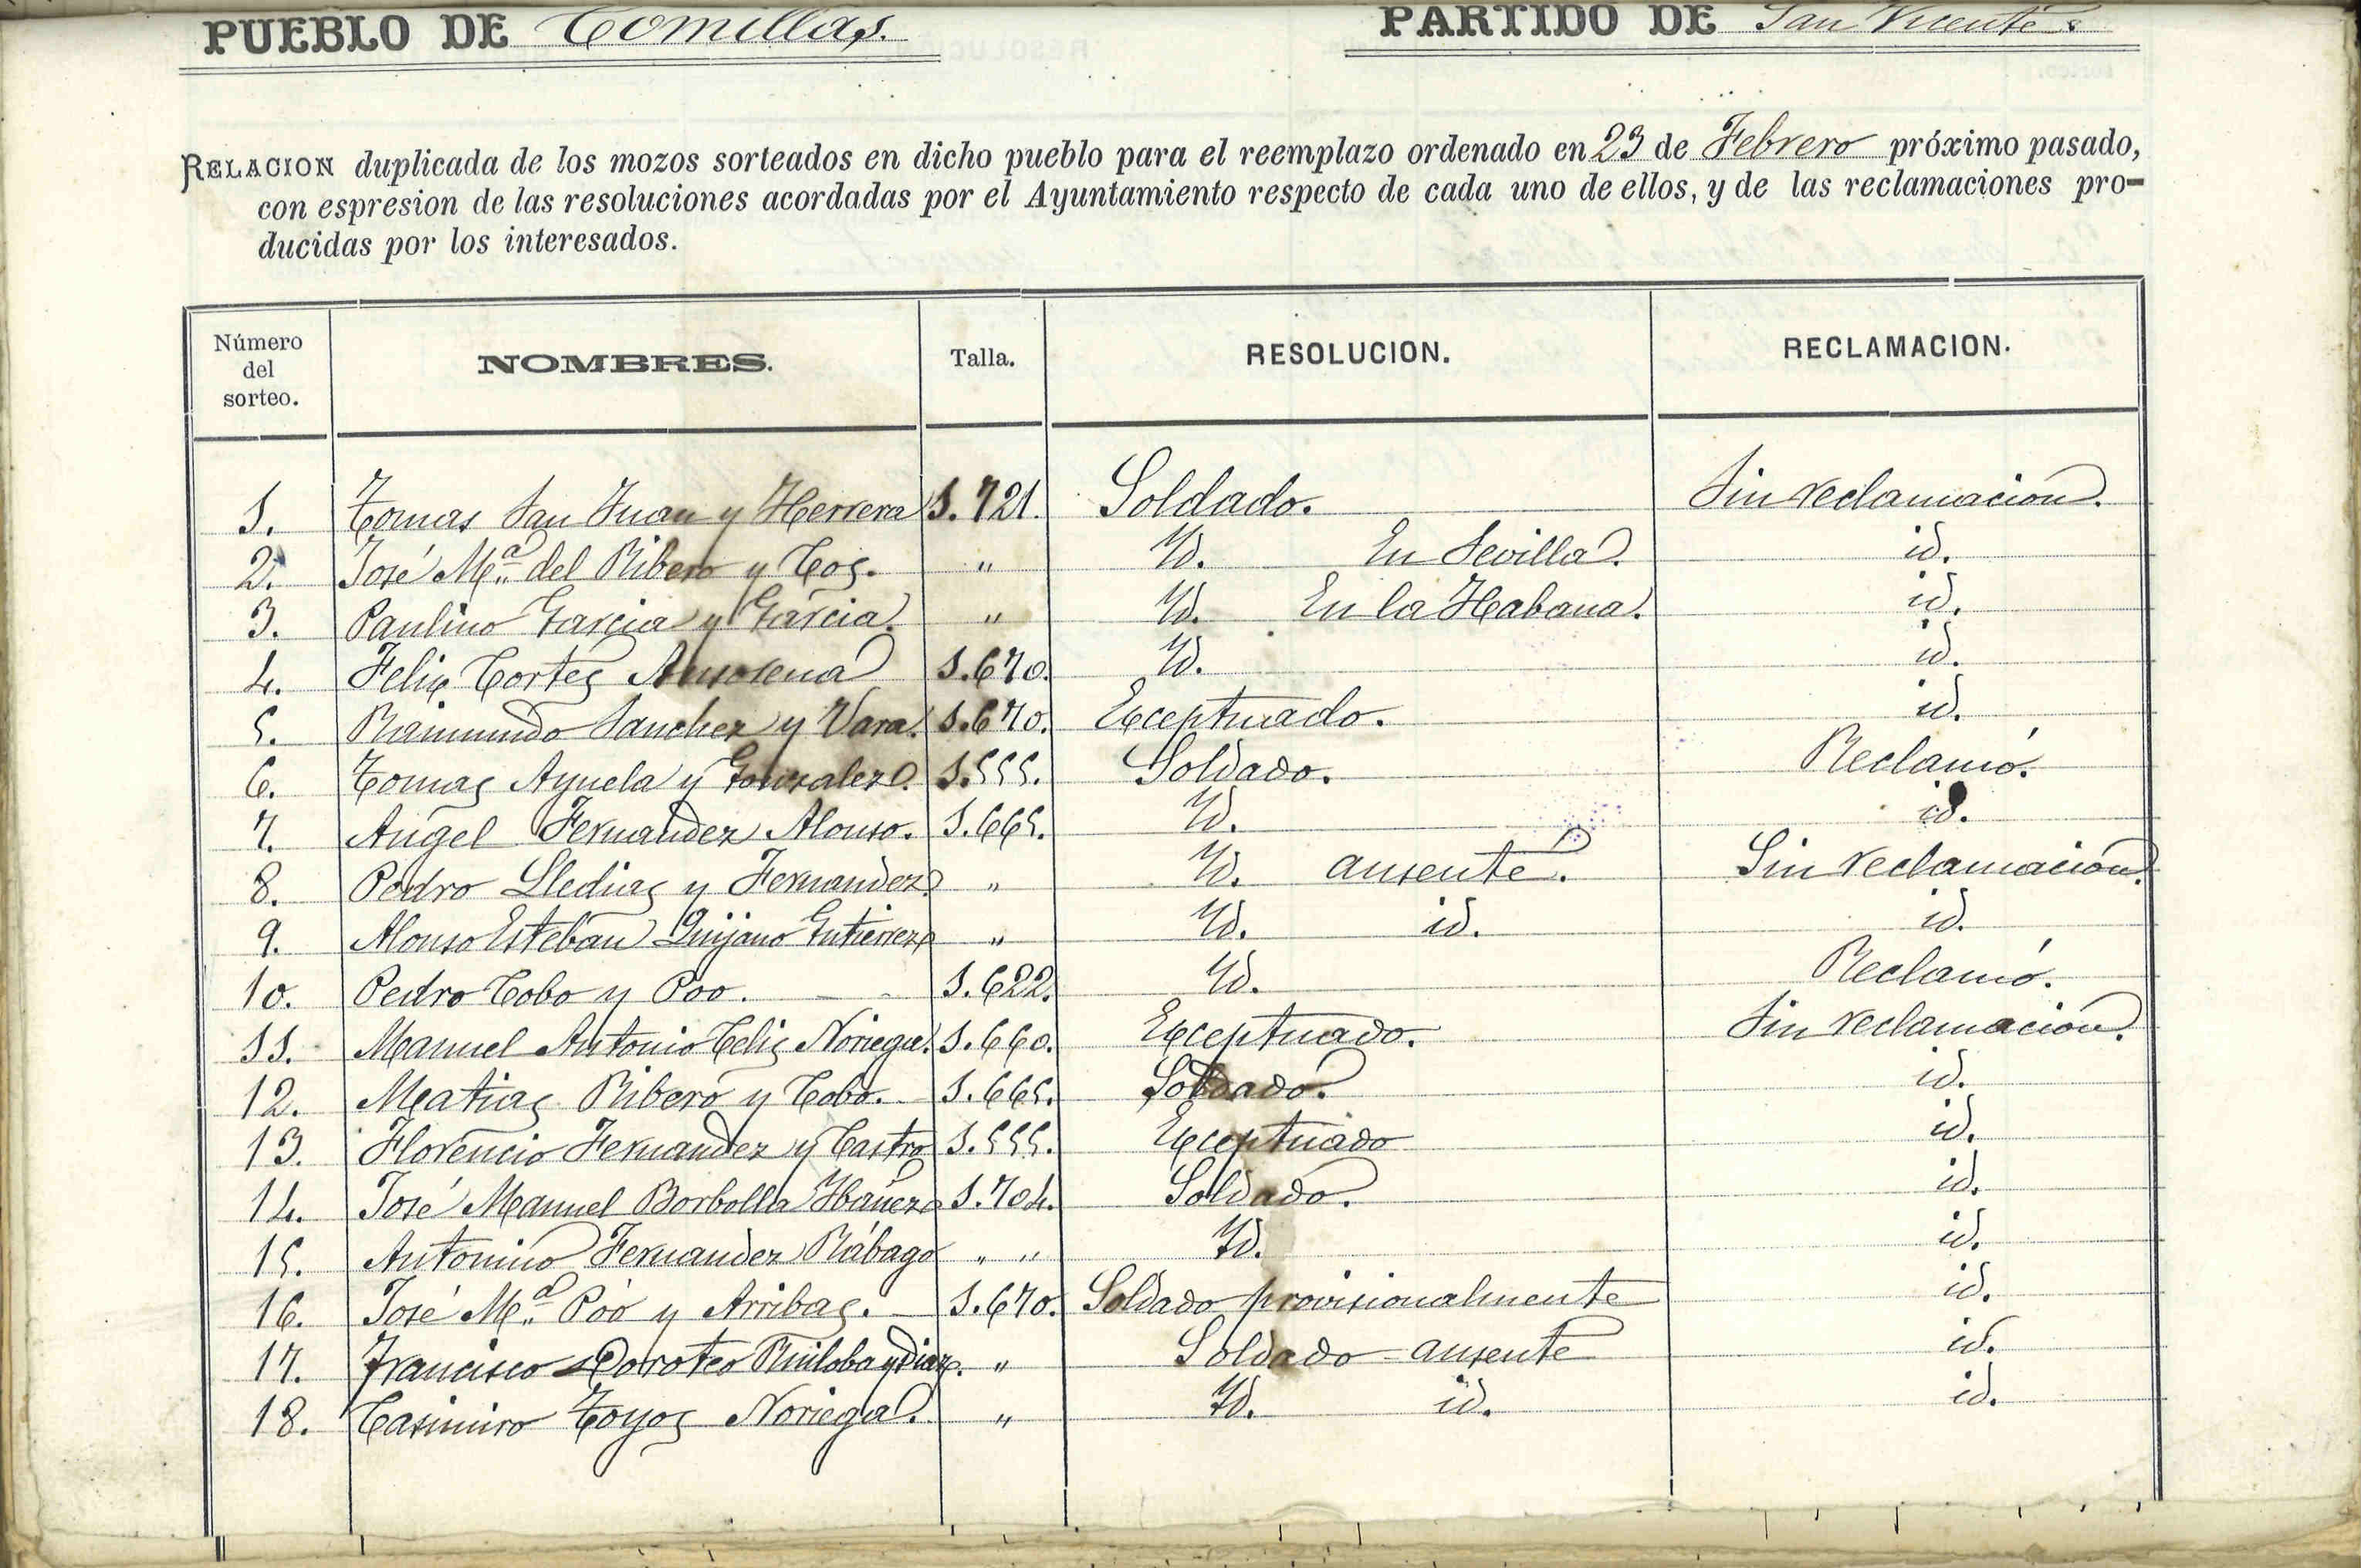 PUEBLO DE Comillas.
PARTIDO DE San Vicente.
RELACION duplicada de los mozos sorteados en dicho pueblo para el reemplazo ordenado en 23 de Febrero próximo pasado,
con espresion de las resoluciones acordadas por el Ayuntamiento respecto de cada uno de ellos, y de las reclamaciones pro-
ducidas por los interesados.
Número del sorteo. NOMBRES. Talla. RESOLUCION. RECLAMACION.
1. Tomas San Juan y Herrera 1.721. Soldado. Sin reclamacion.
2. José Mª del Ribero y Cos. " Id. En Sevilla. id.
3. Paulino Garcia y Garcia. " Id. En la Habana. id.
4. Felix Cortes 1.670. Id. id.
5. Raimundo Sanchez y Vara. 1.670. Exceptuado. id.
6. Tomas Ayuela y Gonzalez. 1.555. Soldado. Reclamó.
7. Angel Fernandez Alonso. 1.665. Id. id.
8. Pedro Lledias y Fernandez. " Id. ausente. Sin reclamacion.
9. Alonso Esteban Quijano Gutierrez " Id. id. id.
10. Pedro Cobo y Poo. 1.622. Id. Reclamó.
11. Manuel Antonio Celis Noriega. 1.660. Exceptuado. Sin reclamacion.
12. Matias Ribero y Cobo. 1.665. Soldado. id.
13. Florencio Fernandez y Castro 1.555. Exceptuado id.
14. José Manuel Borbolla Ibañez 1.704. Soldado. id.
15. Antonino Fernandez Rábago " " Id. id.
16. José Mª Póo y Arribas. 1.670. Soldado provisionalmente id.
17. Francisco Doroteo Ruiloba y Diaz. " Soldado ausente id.
18. Casimiro Toyos Noriega. " Id. id. id.